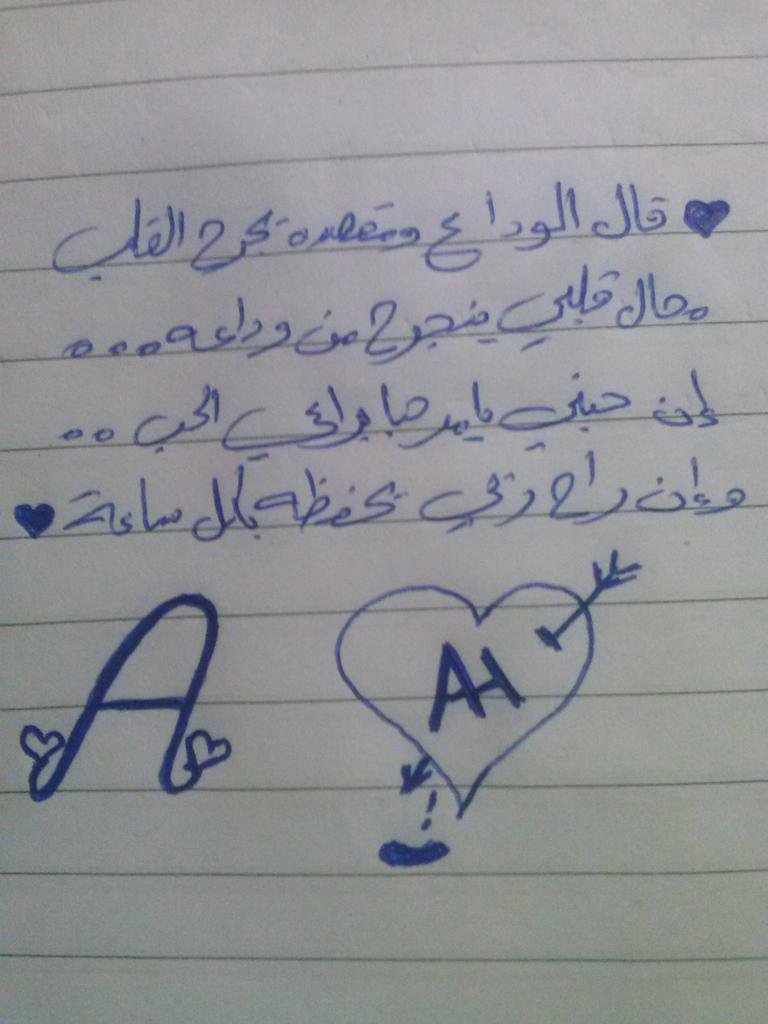 قال الوداع ومقصده يجرح القلب
محال قلبي ينجرح من وداعه...
إن حبني يا مرحبا براعي الحب..
وإن راح ربي يحفظه بكل ساعة
A
AH